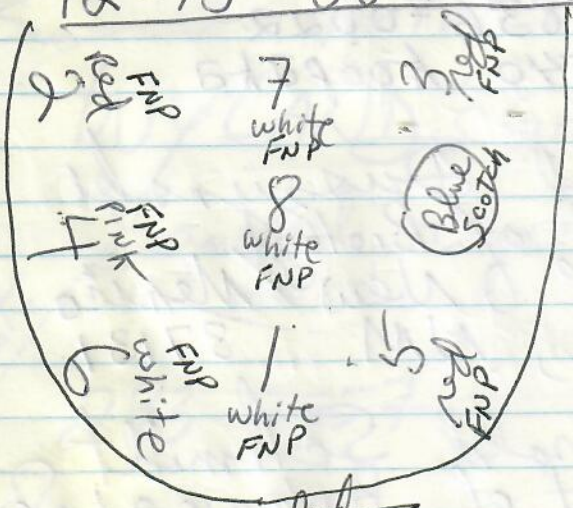 2
Red
FNP
7
white
FNP
3
red
FNP
4
PINK
FNP
8
white
FNP
Blue
Scotch
6
white
FNP
1
white
FNP
5
red
FNP